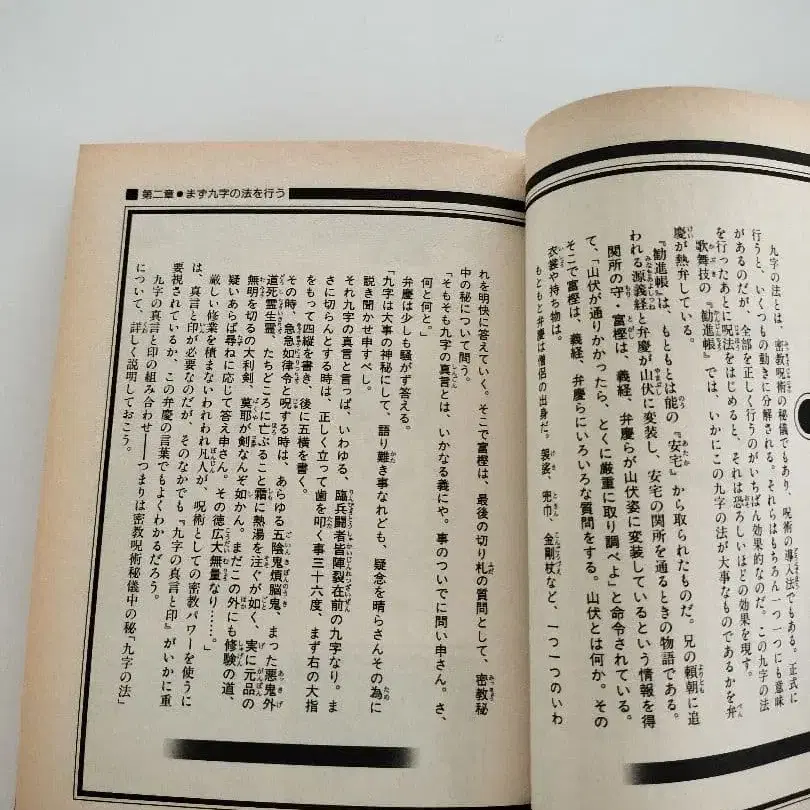 九字の法とは、密教呪術の秘儀でもあり、呪術の導入法でもある。正式に
行うと、いくつもの動きに分解される。それらはもちろん一つ一つにも意味
があるのだが、全部を正しく行うのがいちばん効果的なのだ。この九字の法
を行ったあとに呪法をはじめると、それは恐ろしいほどの効果を現す。
歌舞伎の『勧進帳』では、いかにこの九字の法が大事なものであるかを弁
慶が熱弁している。
『勧進帳』は、もともとは能の『安宅』から取られたものだ。兄の頼朝に追
われる源義経と弁慶が山伏に変装し、安宅の関所を通るときの物語である。
関所の守・富樫は、義経、弁慶らが山伏姿に変装しているという情報を得
て、「山伏が通りかかったら、とくに厳重に取り調べよ」と命令されている。
そこで富樫は、義経、弁慶らにいろいろな質問をする。山伏とは何か。その
衣裳や持ち物は。
もともと弁慶は僧侶の出身だ。袈裟、兜巾、金剛杖など、一つ一つのいわ
■第二章●まず九字の法を行う
れを明快に答えていく。そこで富樫は、最後の切り札の質問として、密教秘
中の秘について問う。
「そもそも九字の真言とは、いかなる義にや。事のついでに問い申さん。さ、
何と何と。」
弁慶は少しも騒がず答える。
「九字は大事の神秘にして、語り難き事なれども、疑念を晴らさんその為に
説き聞かせ申すべし。
それ九字の真言と言っぱ、いわゆる、臨兵闘者皆陣裂在前の九字なり。ま
さに切らんとする時は、正しく立って歯を叩く事三十六度、まず右の大指
をもって四縦を書き、後に五横を書く。
その時、急急如律令と呪する時は、あらゆる五陰鬼煩脳鬼、まった悪鬼外
道死霊生霊、たちどころに亡ぶること霜に熱湯を注ぐが如く、実に元品の
無明を切るの大利剣、莫耶が剣なんぞ如かん。まだこの外にも修験の道、
疑いあらば尋ねに応じて答え申さん。その徳広大無量なり……。」
厳しい修業を積まないわれわれ凡人が、呪術としての密教パワーを使うに
は、真言と印が必要なのだが、そのなかでも『九字の真言と印』がいかに重
要視されているか、この弁慶の言葉でもよくわかるだろう。
九字の真言と印の組み合わせ――つまりは密教呪術秘儀中の秘「九字の法」
について、詳しく説明しておこう。